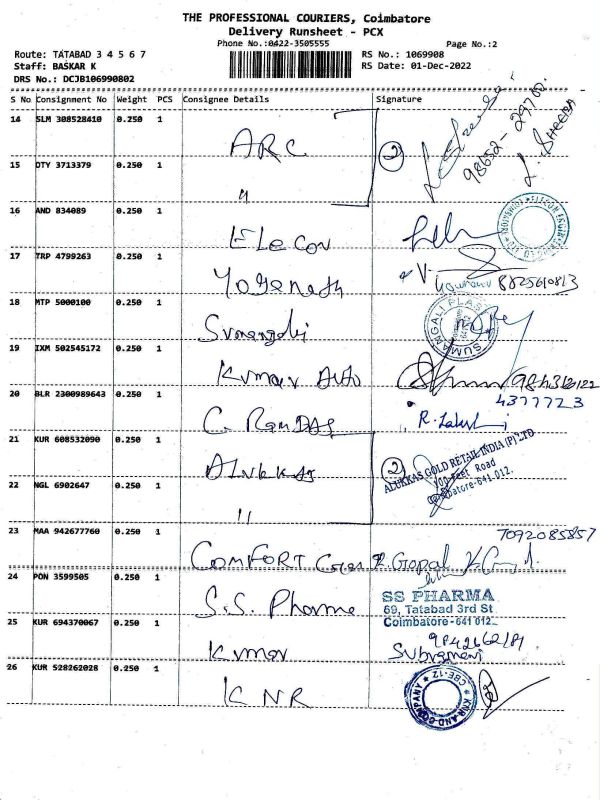 THE PROFESSIONAL COURIERS, Coimbatore
Delivery Runsheet - PCX
Phone No.:0422-3505555
Page No.:2
Route: TATABAD 3 4 5 6 7
RS No.: 1069908
Staff: BASKAR K
RS Date: 01-Dec-2022
DRS No.: DCJB106990802
S No Consignment No Weight PCS Consignee Details Signature
14 SLM 308528410 0.250 1
ARC
2
98652-29700
SHEEBA
15 DTY 3713379 0.250 1
"
16 AND 834089 0.250 1
Elecon
17 TRP 4799263 0.250 1
Yoganath
8825610813
18 MTP 5000100 0.250 1
Sumangali
SUMANGALI PLAST
19 IXM 502545172 0.250 1
Kumar Auto
20 BLR 2300989643 0.250 1
4377723
C. Ramdas
R. Lakshmi
21 KUR 608532090 0.250 1
Alukkas
2
ALUKKAS GOLD RETAIL INDIA (P) LTD
100 Feet Road
Coimbatore-641 012.
22 NGL 6902647 0.250 1
"
23 MAA 942677760 0.250 1
7092085857
COMFORT
R. Gopal
24 PON 3599505 0.250 1
S.S. Pharma
SS PHARMA
69, Tatabad 3rd St
Coimbatore-641 012.
25 KUR 694370067 0.250 1
Kumar
Subramani
26 KUR 528262028 0.250 1
KNR
KNR AND COMPANY
CBE-12